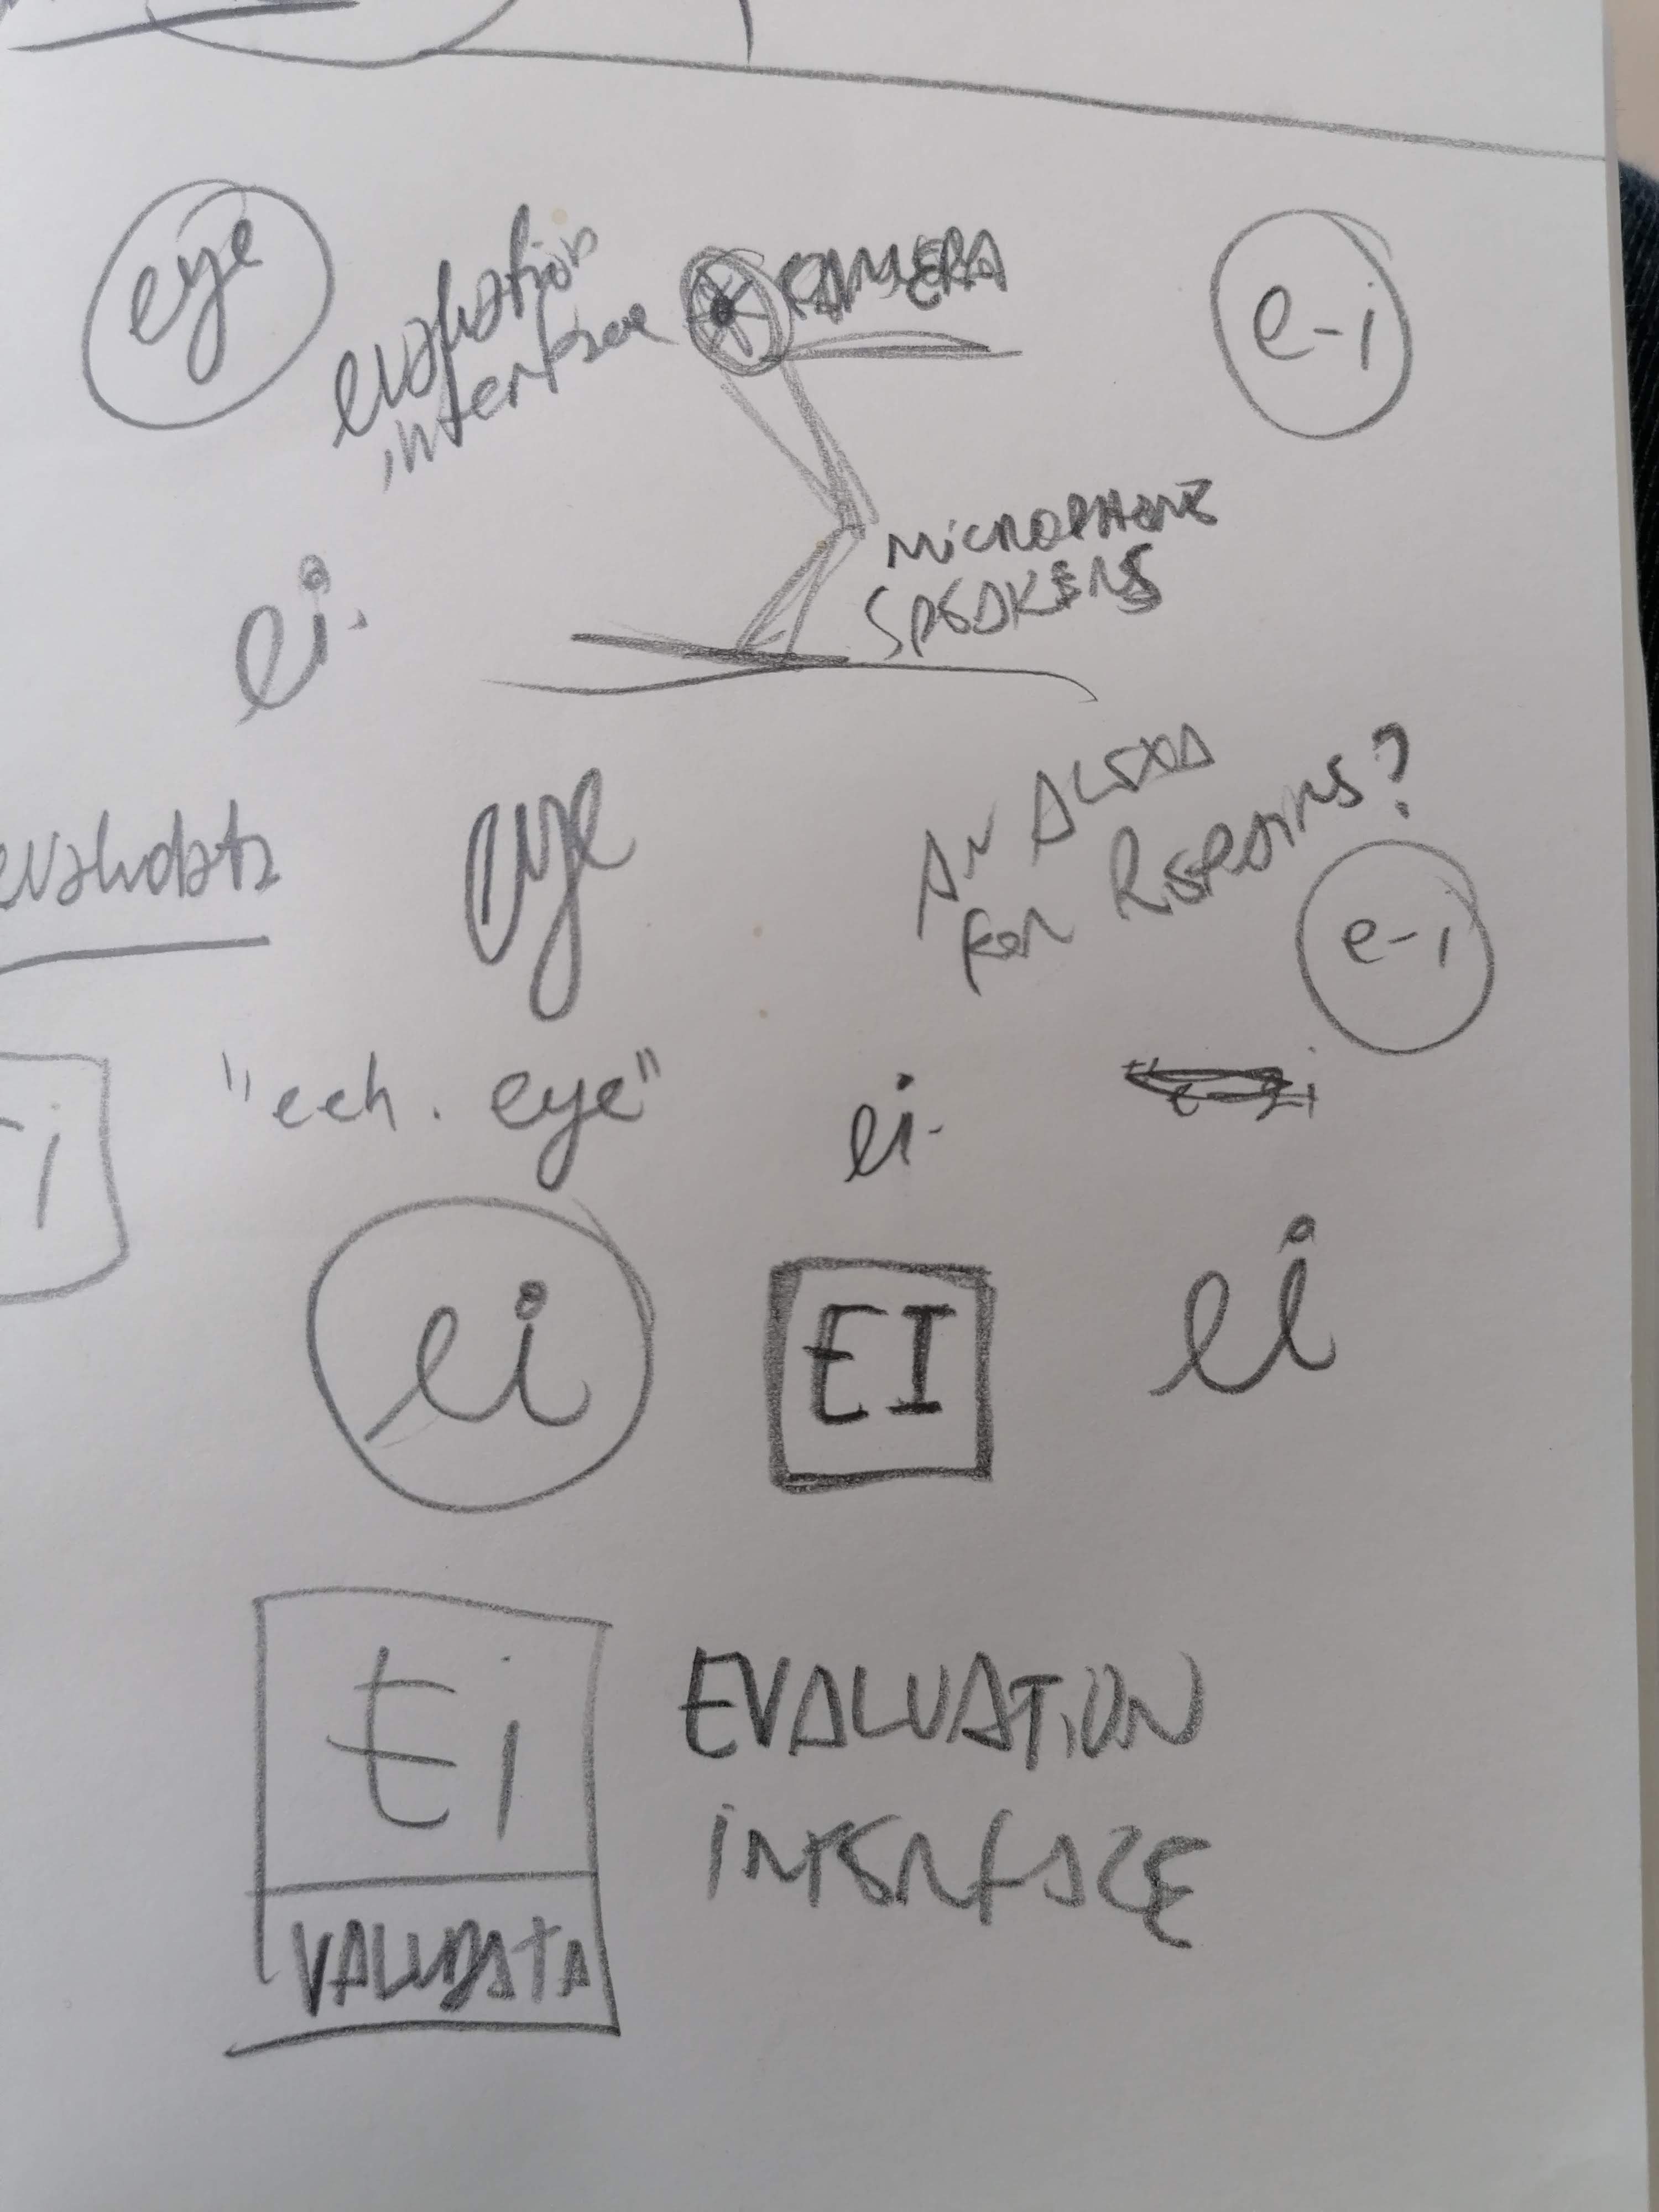 eye
evaluation
interface
CAMERA
e-i
ei.
MICROPHONE
SPEAKERS
eye
AN ALEXA
FOR REPAIRS?
e-i
"eeh. eye"
ei.
i
ei
EI
ei
Ei
EVALUATION
INTERFACE